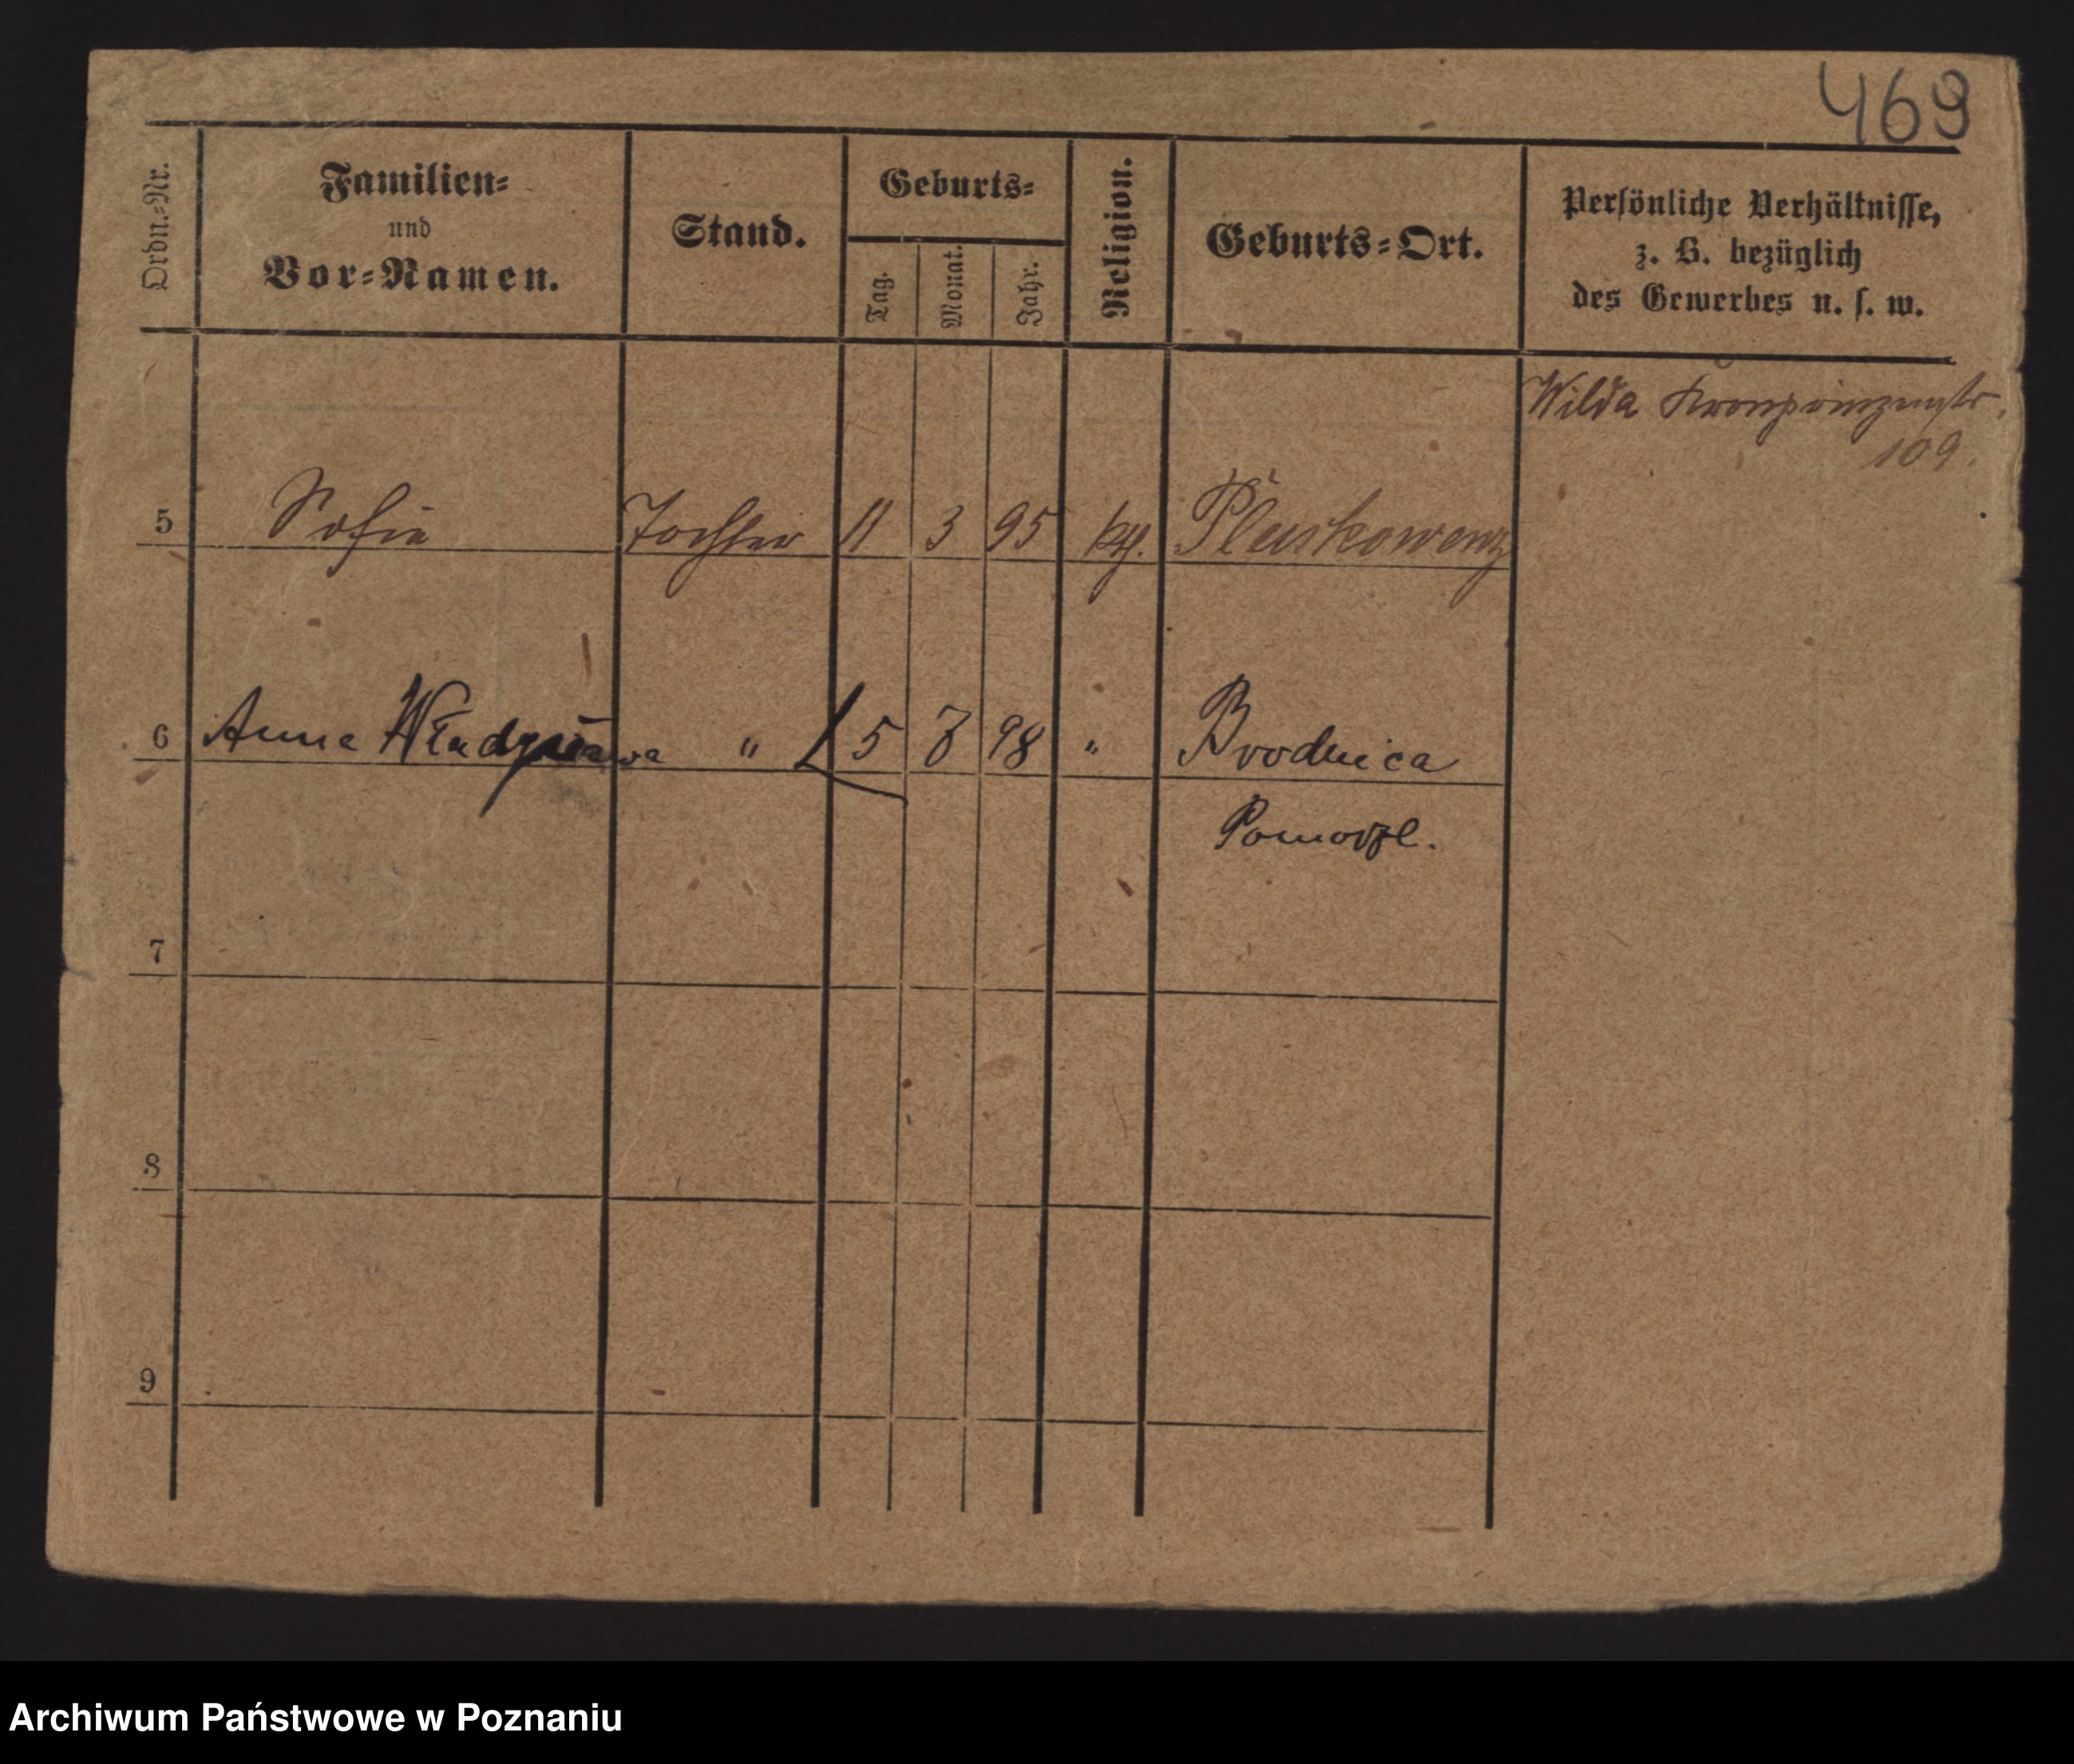 469
Ordn.-Nr.
Familien-
und
Vor-Namen.
Stand.
Geburts-
Tag.
Monat.
Jahr.
Religion.
Geburts-Ort.
Persönliche Verhältnisse,
z. B. bezüglich
des Gewerbes u. s. w.
Wilda Kronprinzenstr.
109.
5 Sofie Tochter 11 3 95 kth. Pluskowenz
6 Anna Władysława " 5 7 98 " Brodnica
7
8
9
Archiwum Państwowe w Poznaniu